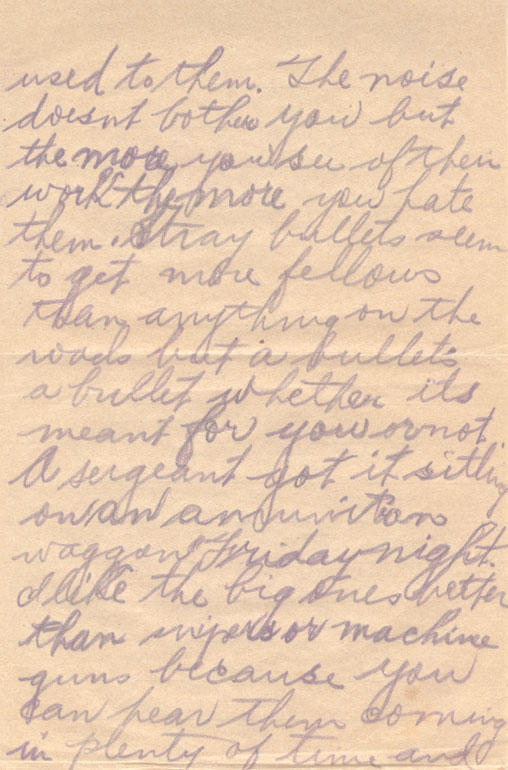 used to them. The noise
doesnt bother you but
the more you see of their
work the more you hate
them. Stray bullets seem
to get more fellows
than anything on the
roads but a bullets
a bullet whether its
meant for you or not
A sergeant got it sitting
on an amunition
waggon Friday night.
I like the big ones better
than or machine
guns because you
can hear them coming
in plenty of time and